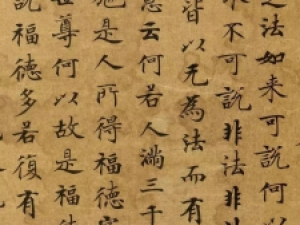 之法如来可說何以
不可說非法非
皆以无為法而有
意云何若人滿三千
施是人所得福德寧
世尊何以故是福德
說福德多若復有